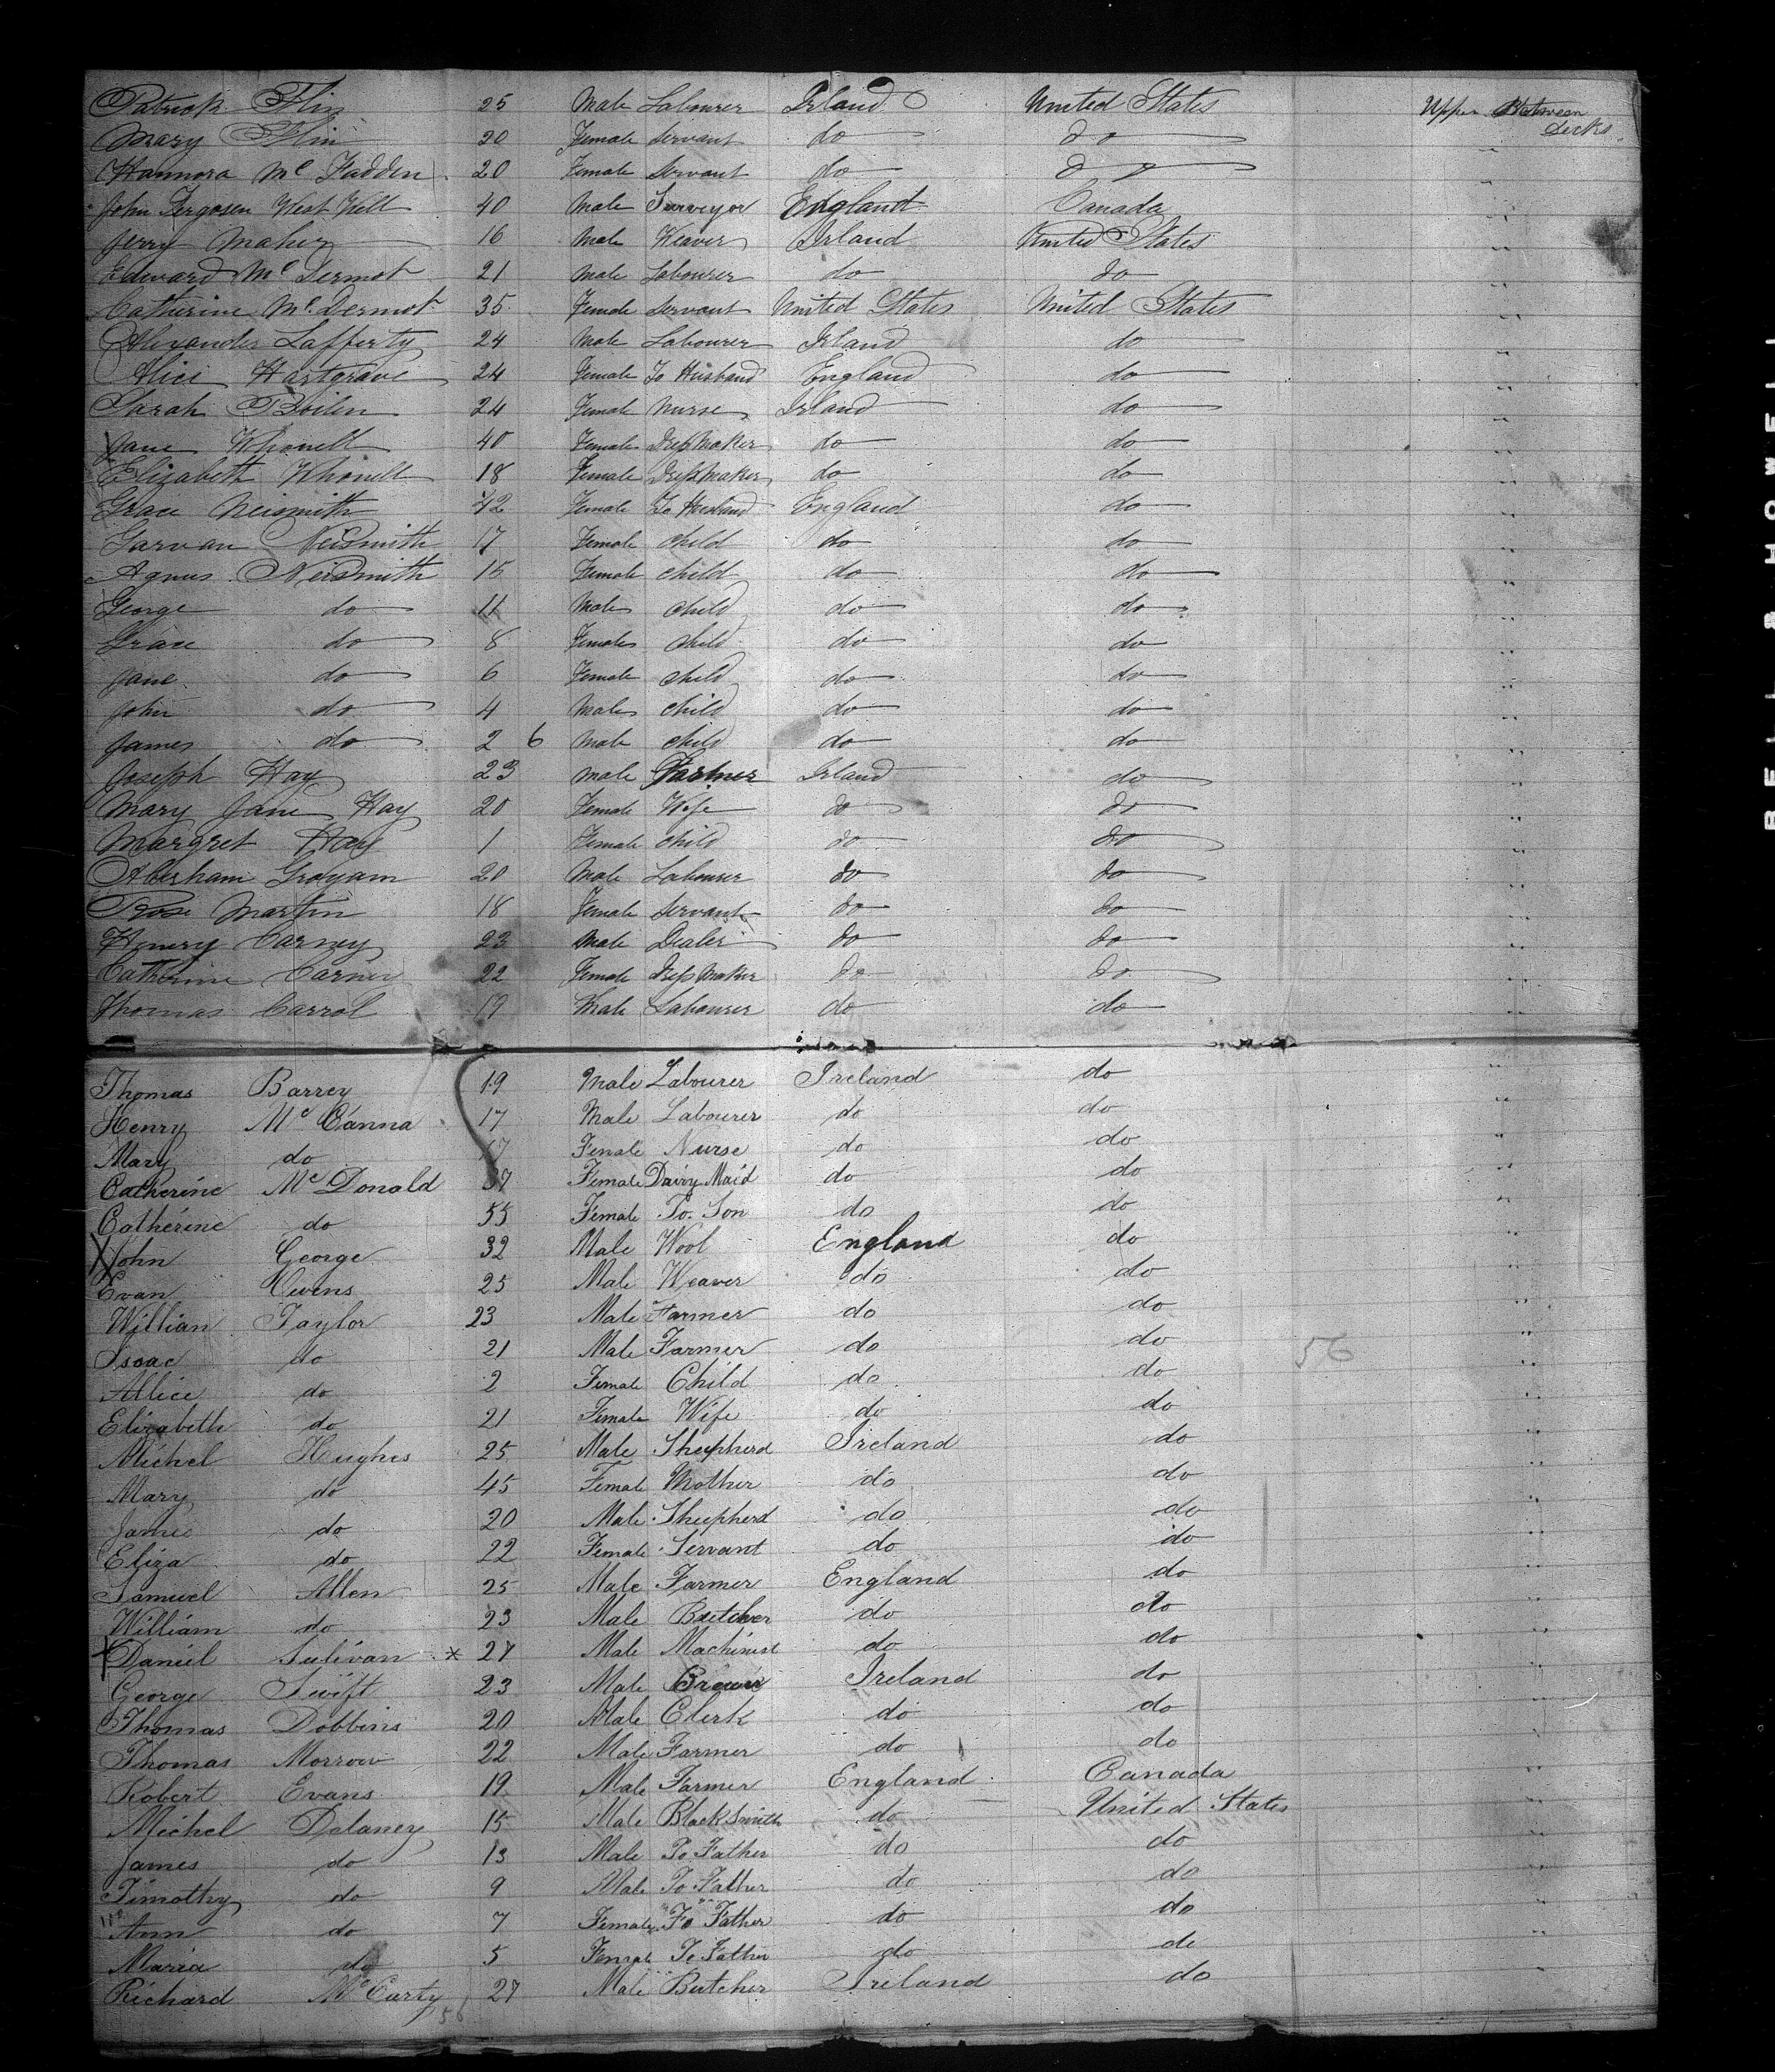 Patrick Flin 25 Male Labourer Irland United States Upper Between Decks
Mary Flin 20 Female Servant do do "
Hannora Mc Fadden 20 Female Servant do do "
John Fergosen West Will 40 Male Surveyor England Canada "
Jerry Maher 16 Male Weaver Irland United States "
Edward Mc Dermot 21 Male Labourer do do "
Catherine Mc Dermot 35 Female Servant United States United States "
Alexander Lafferty 24 Male Labourer Irland do "
Alice Hartgrave 24 Female To Husband England do "
Sarah Boilen 24 Female Nurse Irland do "
Jane Whonell 40 Female Dressmaker do do "
Elizabeth Whonell 18 Female Dressmaker do do "
Grace Neismith 42 Female To Husband England do "
Sarvan Neismith 17 Female child do do "
Agnus Neismith 15 Female child do do "
George do 11 Male child do do "
Grace do 8 Female child do do "
Jane do 6 Female child do do "
John do 4 Male child do do "
James do 2 6 Male child do do "
Joseph Hay 23 Male Farmer Irland do "
Mary Jane Hay 20 Female Wife do do "
Margret Hay 1 Female child do do "
Abersham Grayam 20 Male Labourer do do "
Rose Martin 18 Female Servant do do "
Henery Carney 23 Male Dealer do do "
Catherine Carney 22 Female Dressmaker do do "
Thomas Carrol 19 Male Labourer do do "
Thomas Barrey 19 Male Labourer Ireland do "
Henry Mc Canna 17 Male Labourer do do "
Mary do 17 Female Nurse do do "
Catherine Mc Donald 37 Female Dairy Maid do do "
Catherine do 55 Female To Son do do "
X John George 32 Male Wool England do "
Evan Owens 25 Male Weaver do do "
Willian Taylor 23 Male Farmer do do "
Isaac do 21 Male Farmer do do 56 "
Allice do 2 Female Child do do "
Elizabeth do 21 Female Wife do do "
Michel Hughes 25 Male Shepherd Ireland do "
Mary do 45 Female Mother do do "
James do 20 Male Shepherd do do "
Eliza do 22 Female Servant do do "
Samuel Allen 25 Male Farmer England do "
William do 23 Male Butcher do do "
X Daniel Sulivan * 27 Male Machinist do do "
George Swift 23 Male Brewer Ireland do "
Thomas Dobbins 20 Male Clerk do do "
Thomas Morrow 22 Male Farmer do do "
Robert Evans 19 Male Farmer England Canada "
Michel Delaney 15 Male BlackSmith do United States "
James do 13 Male To Father do do "
Timothy do 9 Male To Father do do "
Ann do 7 Female To Father do do "
Maria do 5 Female To Father do do "
Richard Mc Carty 27 Male Butcher Ireland do "
56
BELL & HOWELL